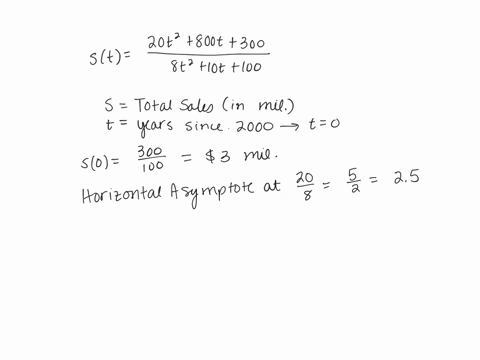 s(t) = (20t² + 800t + 300) / (8t² + 10t + 100)
S = Total Sales (in mil.)
t = years since 2000 → t=0
s(0) = 300/100 = $3 mil.
Horizontal Asymptote at 20/8 = 5/2 = 2.5